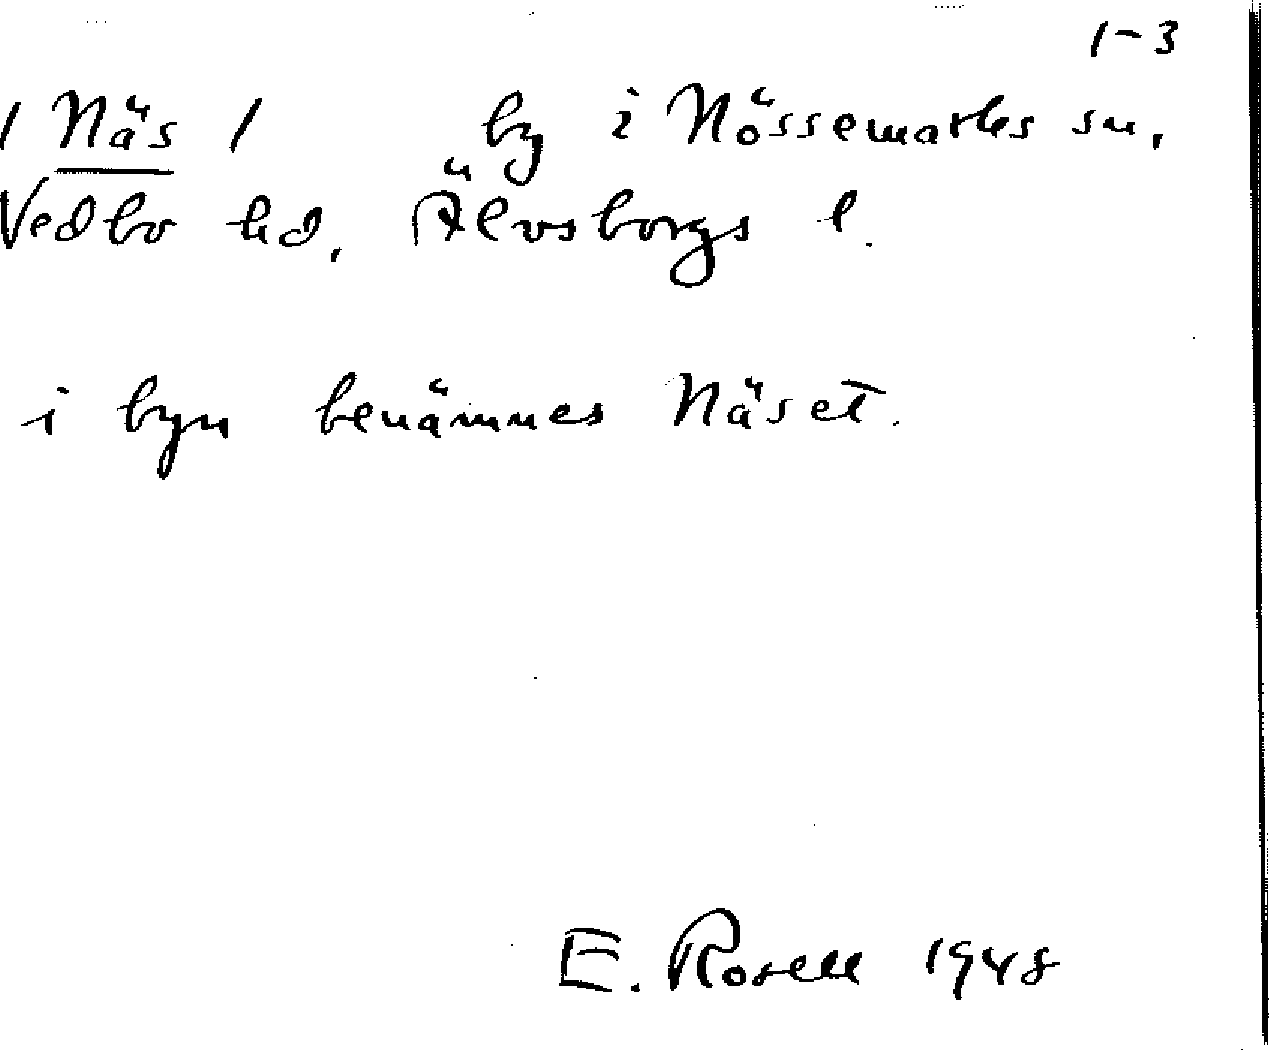 1-3
/ Näs / by i Nössemarks sn,
Vedbo hd, Älvsborgs l.
i byn benämnes Näset.
E. Rosell 1948